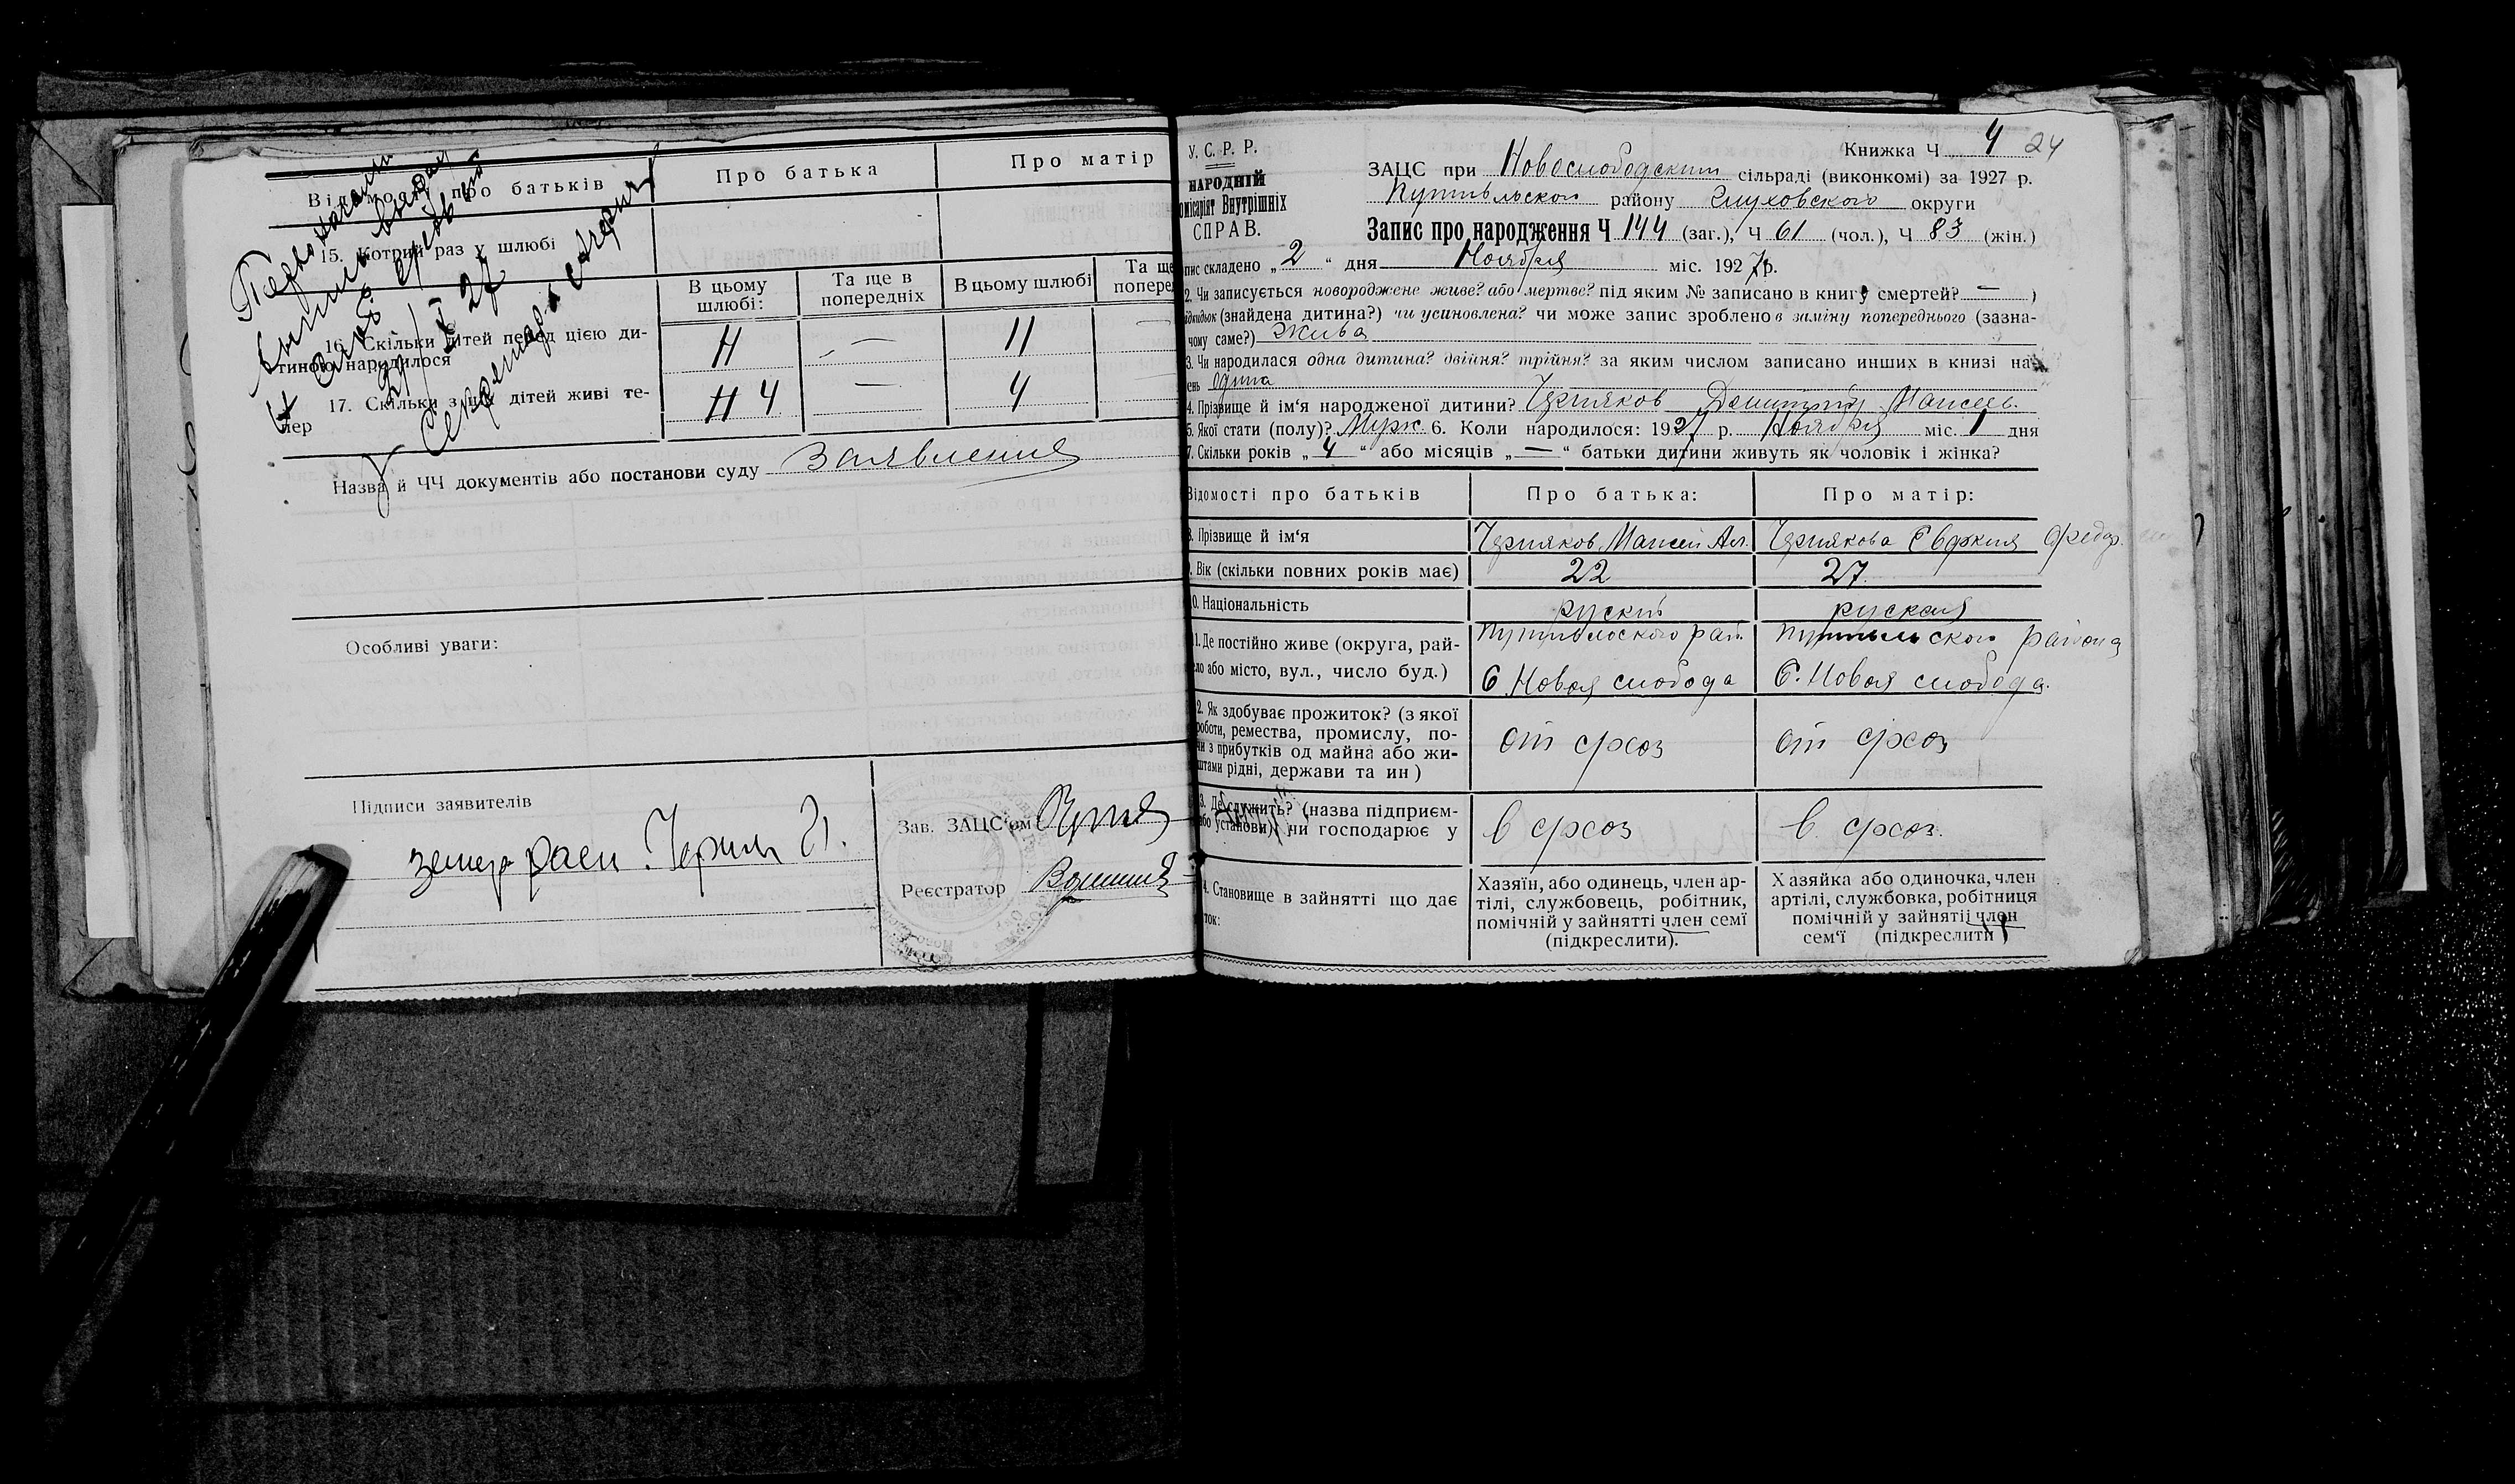 Відомост про батьків
Про батька
Про матір
15. Котрий раз у шлюбі
В цьому шлюбі:
Та ще в попередніх
В цьому шлюбі
Та ще
попере
16. Скільки дітей перед цією ди-
тиною народилося
4 — 4 —
17. Скільки з цих дітей живі те-
пер
4 — 4
Секретарь
Назва й ЧЧ документів або постанови суду Заявления
Особливі уваги:
Підписи заявителів
Зав. ЗАЦС'ом
Реєстратор
Книжка Ч 4 24
У. С. Р. Р.
НАРОДНІЙ
омісаріят Внутрішніх
СПРАВ.
ЗАЦС при Новослободским сільраді (виконкомі) за 1927 р.
Путивльского району Глуховского округи
Запис про народження Ч 144 (заг.), Ч 61 (чол.), Ч 83 (жін.)
пис складено „2“ дня Ноября міс. 1927р.
2. Чи записується новороджене живе? або мертве? під яким № записано в книгу смертей? — )
ідкидьок (знайдена дитина?) чи усиновлена? чи може запис зроблено в заміну попереднього (зазна-
чому саме?) Жива
3. Чи народилася одна дитина? двійня? трійня? за яким числом записано инших в книзі на-
ень одна
4. Прізвище й ім'я народженої дитини? Черняков Димитрий Моисеев.
5. Якої стати (полу)? Муж. 6. Коли народилося: 1927 р. Ноября міс. 1 дня
7. Скільки років „4“ або місяців „—“ батьки дитини живуть як чоловік і жінка?
Відомості про батьків
Про батька:
Про матір:
8. Прізвище й ім'я
Черняков Моисей Ал.
Чернякова Євфкия Федор.
9. Вік (скільки повних років має)
22
27
10. Національність
руский
руская
11. Де постійно живе (округа, рай-
ело або місто, вул., число буд.)
Путивльского рай.
С. Новая слобода
Путивльского района
С. Новая слобода.
12. Як здобуває прожиток? (з якої
роботи, ремества, промислу, по-
чи з прибутків од майна або жи-
штами рідні, держави та ин )
от с/хоз
от с/хоз
13. Де служить? (назва підприєм-
або установи), чи господарює у
в с/хоз
в. с/хоз.
14. Становище в зайнятті що дає
ток:
Хазяїн, або одинець, член ар-
тілі, службовець, робітник,
помічній у зайнятті член семї
(підкреслити).
Хазяйка або одиночка, член
артілі, службовка, робітниця
помічній у зайняті член
сем'ї (підкреслити)